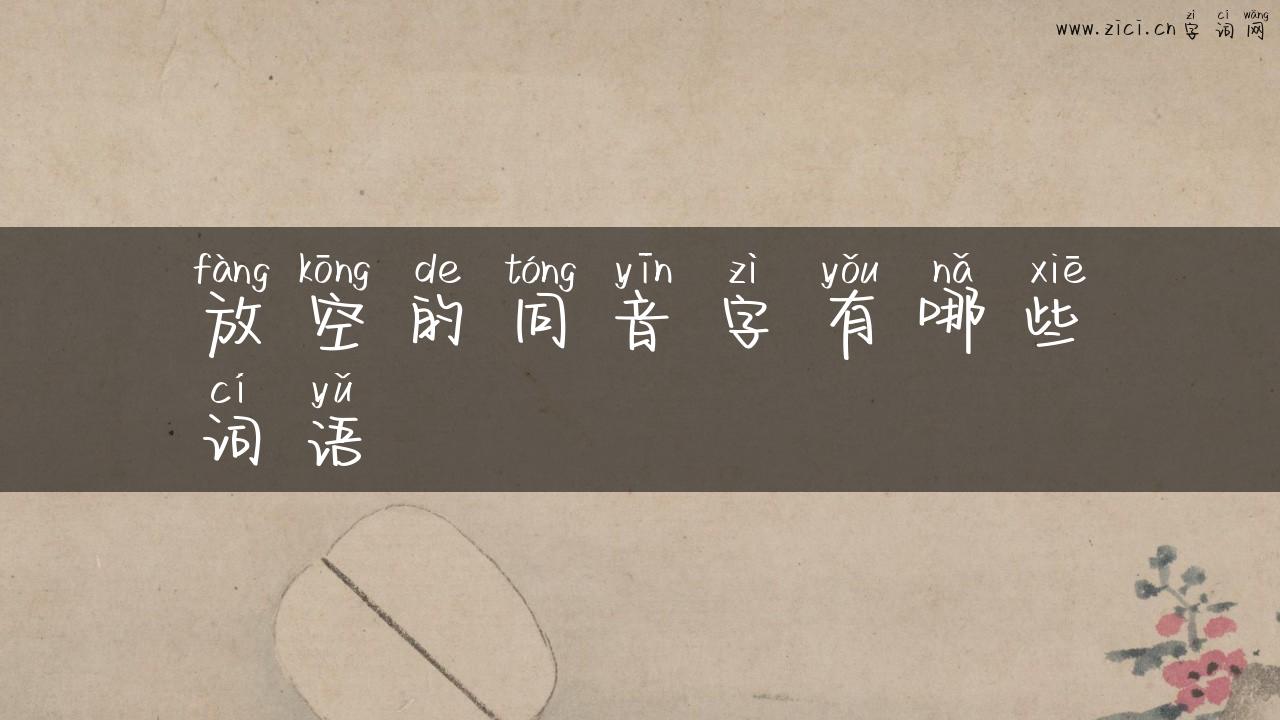 zì cí wǎng
www.zici.cn 字词网
fàng kōng de tóng yīn zì yǒu nǎ xiē
放空的同音字有哪些
cí yǔ
词语